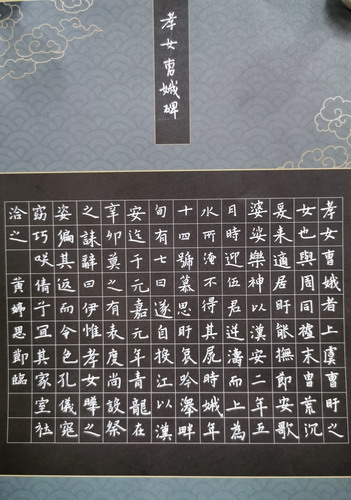 孝女曹娥碑
孝女曹娥者上虞曹盱之
女也與周同祖末冑荒沉
爰来適居盱能撫節安歌
婆娑樂神以漢安二年五
月時迎伍君逆濤而上為
水所淹不得其屍時娥年
十四號慕思盱哀吟澤畔
旬有七日遂自投江以漢
安迄于元嘉元年青龍在
辛卯莫之有表度尚設祭
之誄辭曰伊惟孝女曄之
姿偏其返而令色孔儀窈
窈巧咲倩兮宜其家室在
洽之 黄 思 臨